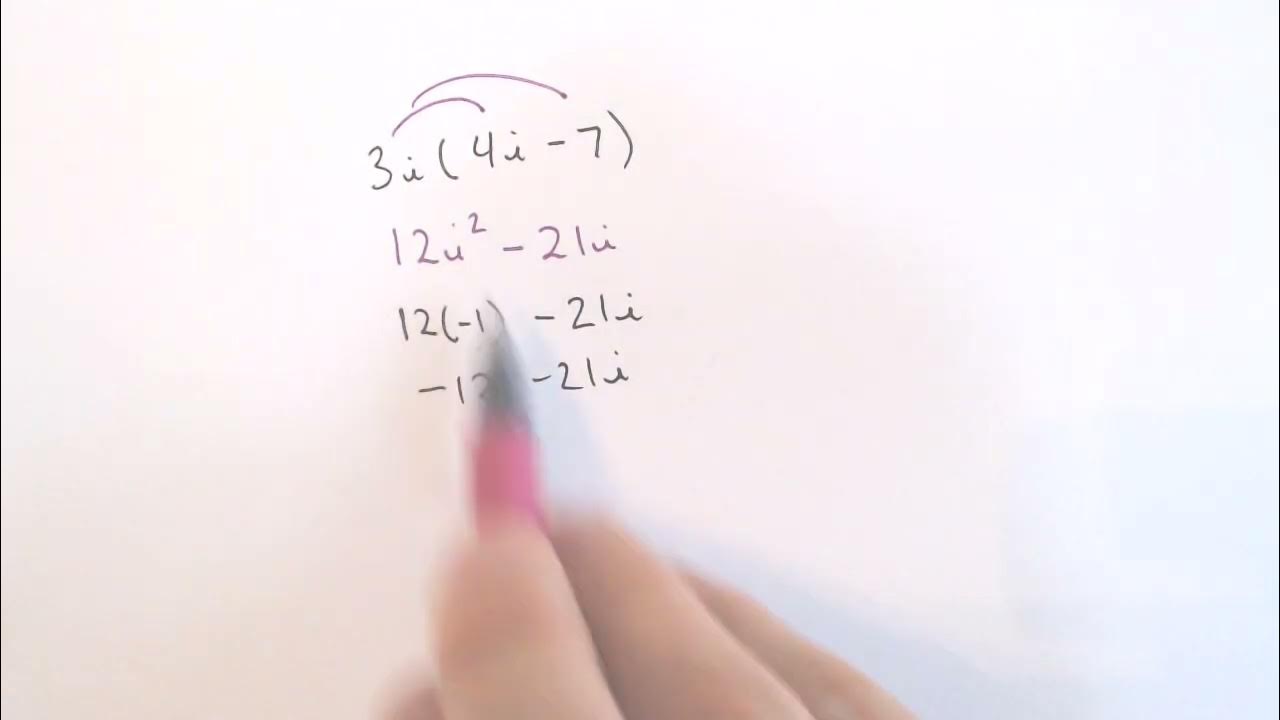 3i(4i-7)
12i² - 21i
12(-1) - 21i
-12 - 21i